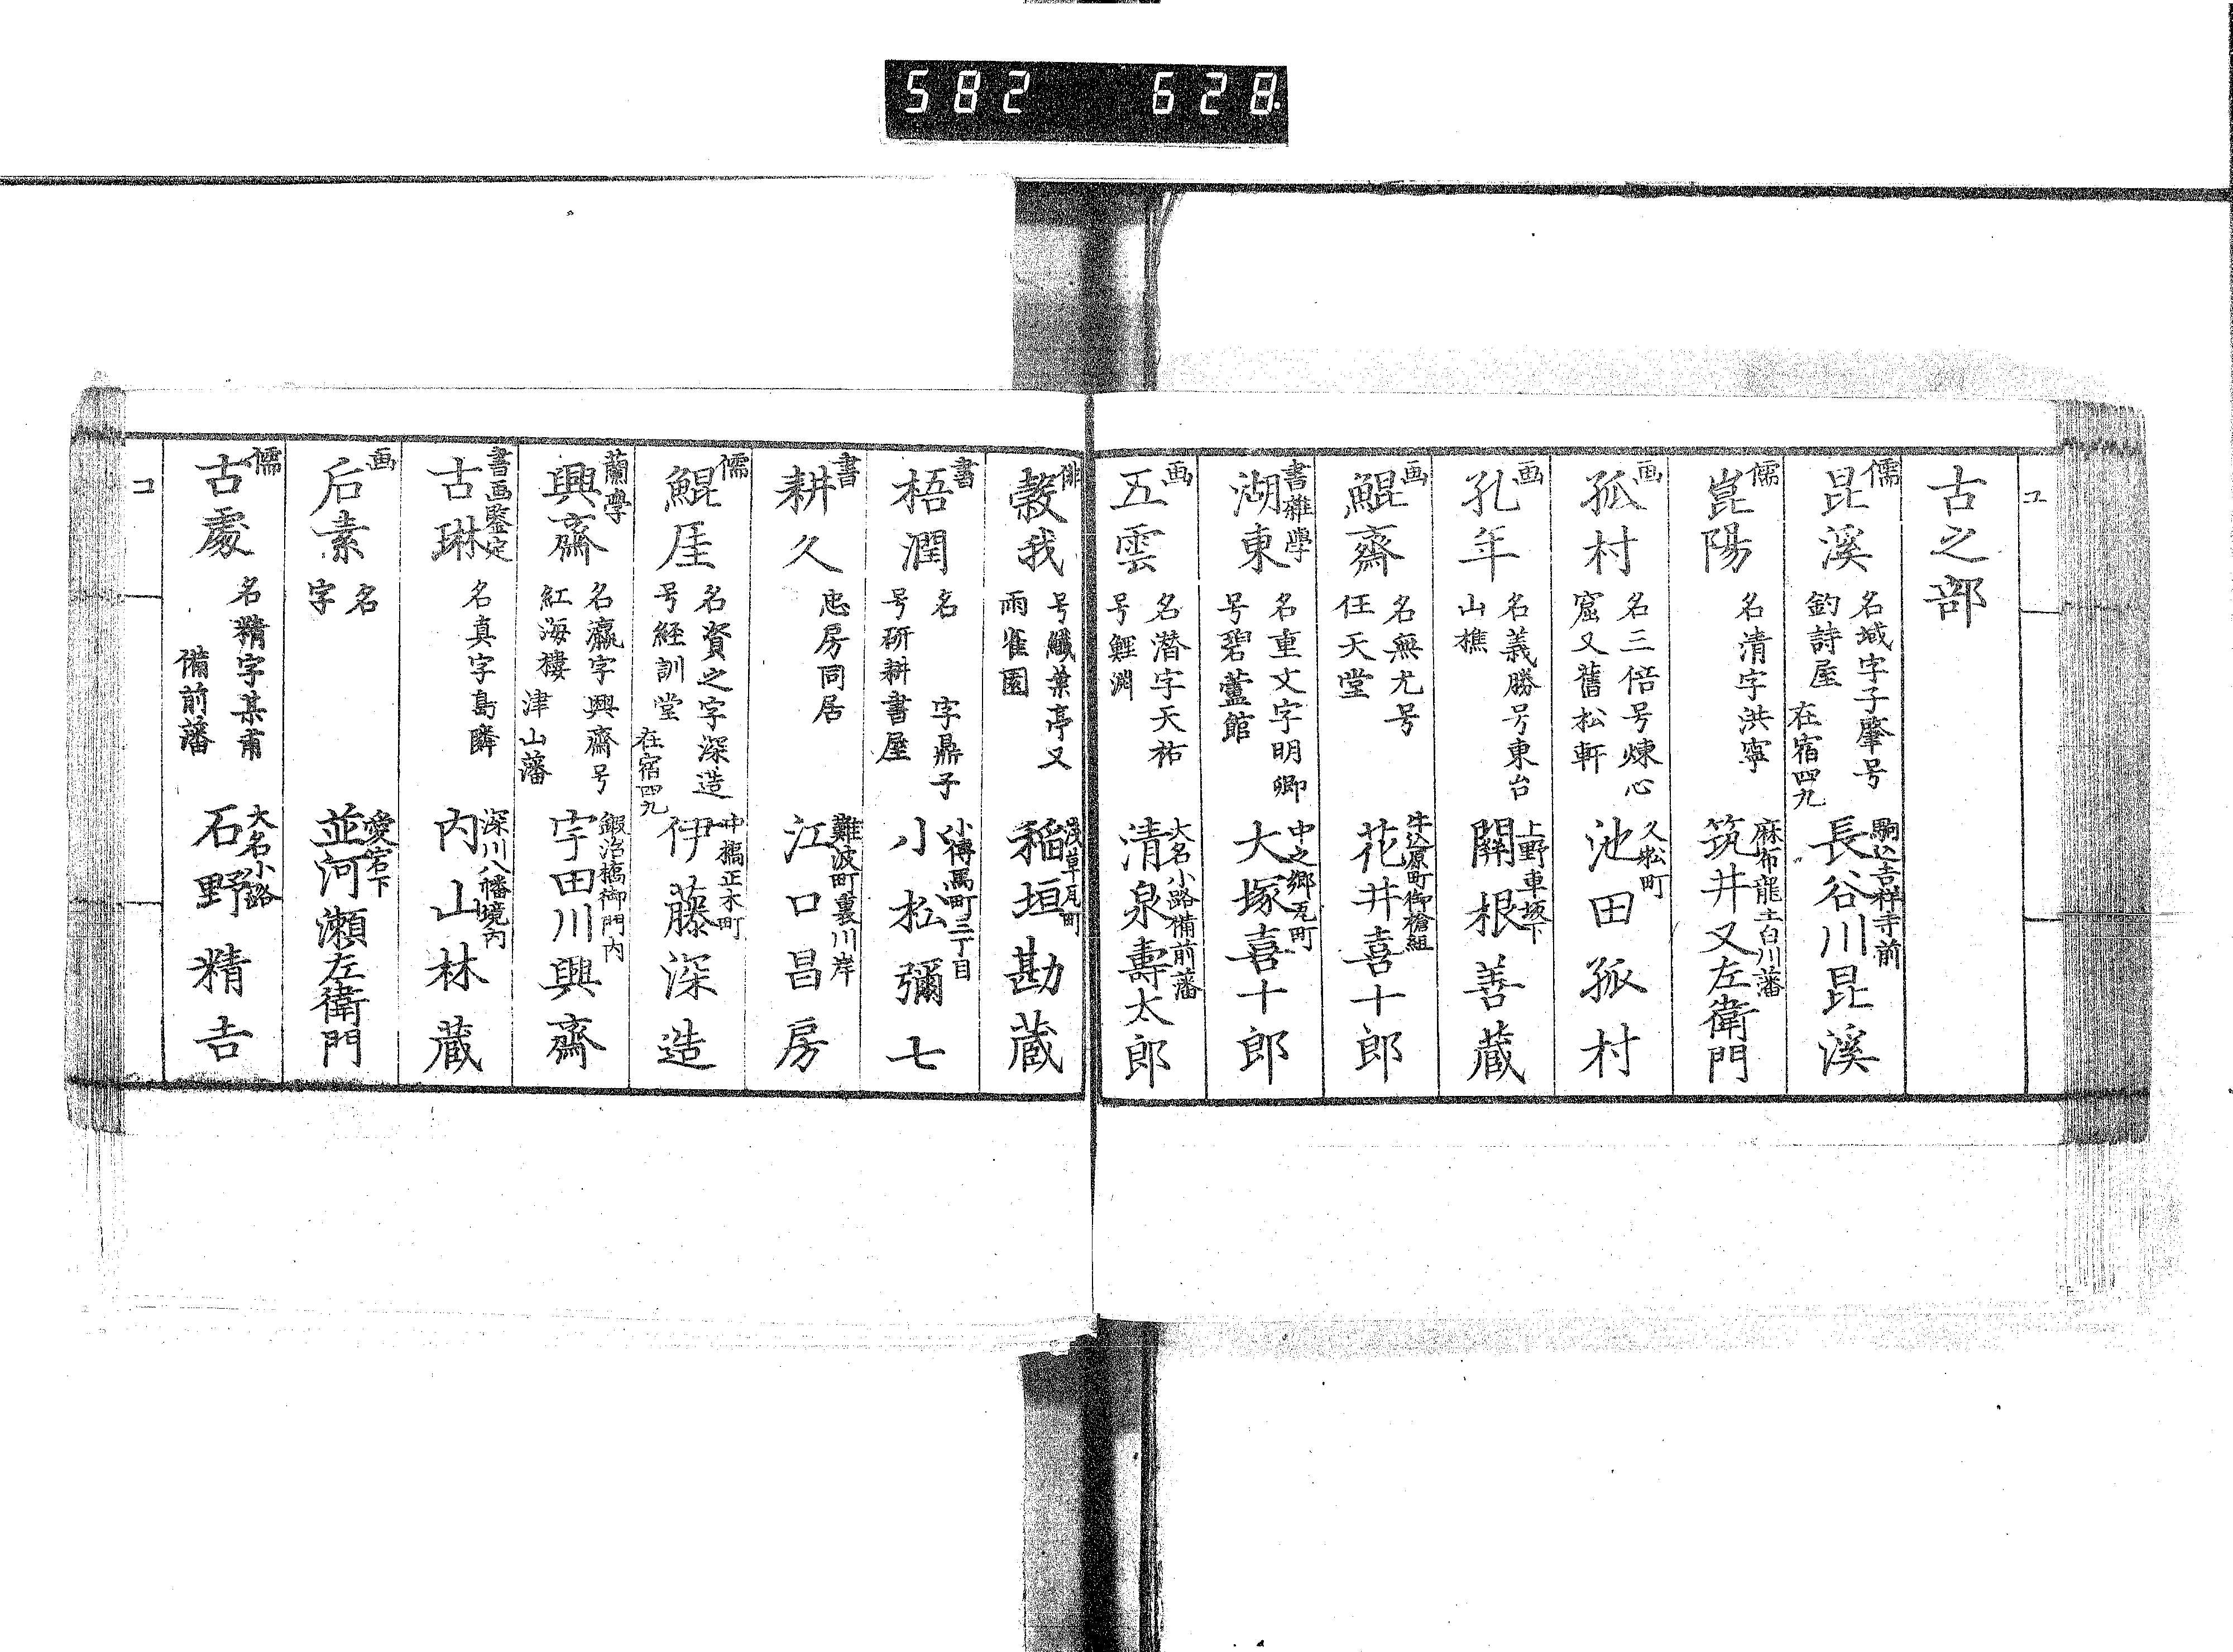 582 628.
コ
古之部
儒
昆溪
名域字子肇号
釣詩屋
在宿四九
駒込吉祥寺前
長谷川昆溪
儒
崑陽
名清字洪寧
麻布龍土白川藩
筑井又左衛門
画
孤村
名三倍号煉心
窟又舊松軒
久松町
池田孤村
画
孔年
名義勝号東台
山樵
上野車坂下
關根善蔵
画
鯤齋
名無尤号
任天堂
牛込原町御槍組
花井喜十郎
書雜學
湖東
名重文字明卿
号碧蘆館
中之郷瓦町
大塚喜十郎
画
五雲
名潜字天祐
号鯉渊
大名小路備前藩
清泉壽太郎
俳
穀我
号纎葉亭又
雨雀園
浅草瓦町
稲垣勘蔵
書
梧潤
名 字鼎子
号研耕書屋
小傳馬町二丁目
小松彌七
書
耕久
忠房同居
難波町裏川岸
江口昌房
儒
鯤厓
名資之字深造
号経訓堂
在宿四九
中橋正木町
伊藤深造
蘭學
興齋
名瀛字興齋号
紅海樓
津山藩
鍜冶橋御門内
宇田川興齋
書画鑒定
古琳
名真字島隣
深川八幡境内
内山林蔵
画
后素
名
字
愛宕下
並河瀬左衛門
儒
古處
名精字某甫
備前藩
大名小路
石野精吉
コ